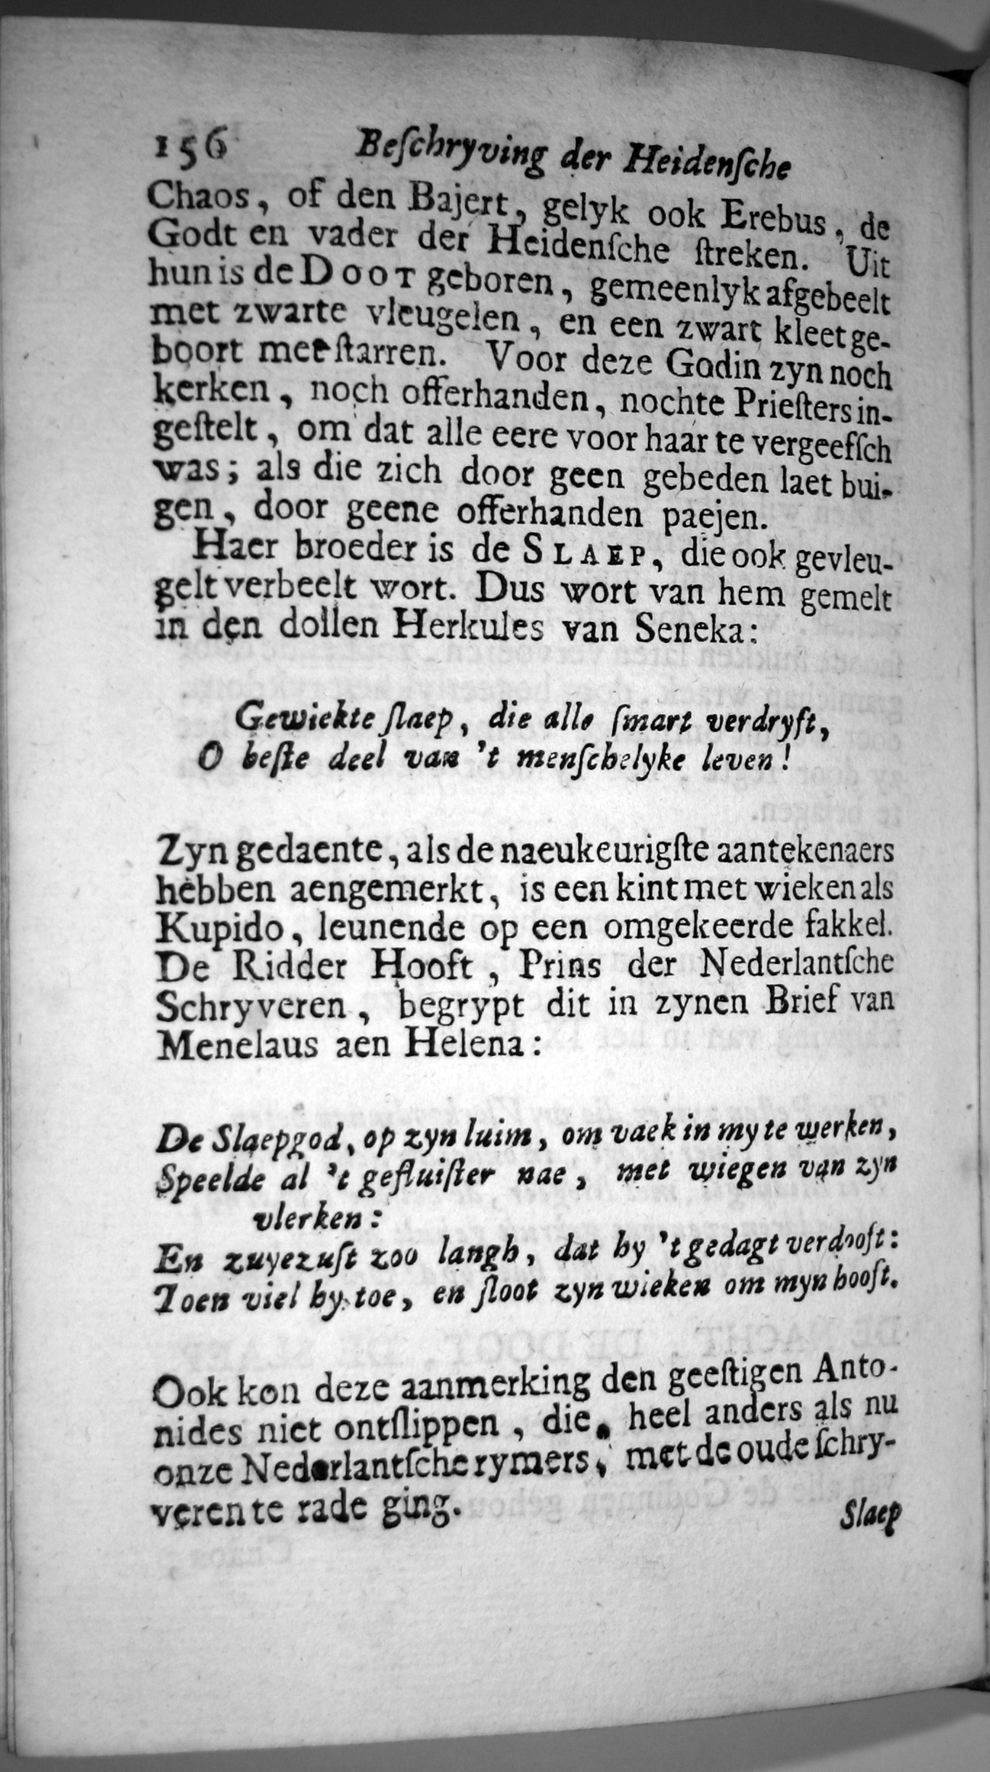 156 Beſchryving der Heidenſche
Chaos, of den Bajert, gelyk ook Erebus, de
Godt en vader der Heidenſche ſtreken. Uit
hun is de DOOT geboren, gemeenlyk afgebeelt
met zwarte vleugelen, en een zwart kleet ge-
boort met ſtarren. Voor deze Godin zyn noch
kerken, noch offerhanden, nochte Prieſters in-
geſtelt, om dat alle eere voor haar te vergeefſch
was; als die zich door geen gebeden laet bui-
gen, door geene offerhanden paejen.
Haer broeder is de SLAEP, die ook gevleu-
gelt verbeelt wort. Dus wort van hem gemelt
in den dollen Herkules van Seneka:
Gewiekte ſlaep, die alle ſmart verdryft,
O beſte deel van 't menſchelyke leven!
Zyn gedaente, als de naeukeurigſte aantekenaers
hebben aengemerkt, is een kint met wieken als
Kupido, leunende op een omgekeerde fakkel.
De Ridder Hooft, Prins der Nederlantſche
Schryveren, begrypt dit in zynen Brief van
Menelaus aen Helena:
De Slaepgod, op zyn luim, om vaek in my te werken,
Speelde al 't gefluiſter nae, met wiegen van zyn
vlerken:
En zuyezuſt zoo langh, dat hy 't gedagt verdooft:
Toen viel hy toe, en ſloot zyn wieken om myn hooft.
Ook kon deze aanmerking den geeſtigen Anto-
nides niet ontſlippen, die, heel anders als nu
onze Nederlantſche rymers, met de oude ſchry-
veren te rade ging.
Slaep